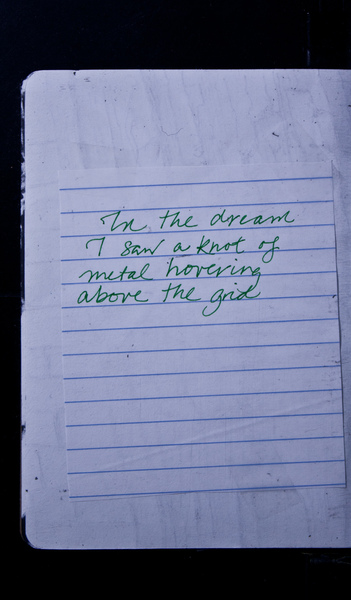 In the dream
I saw a knot of
metal hovering
above the grid